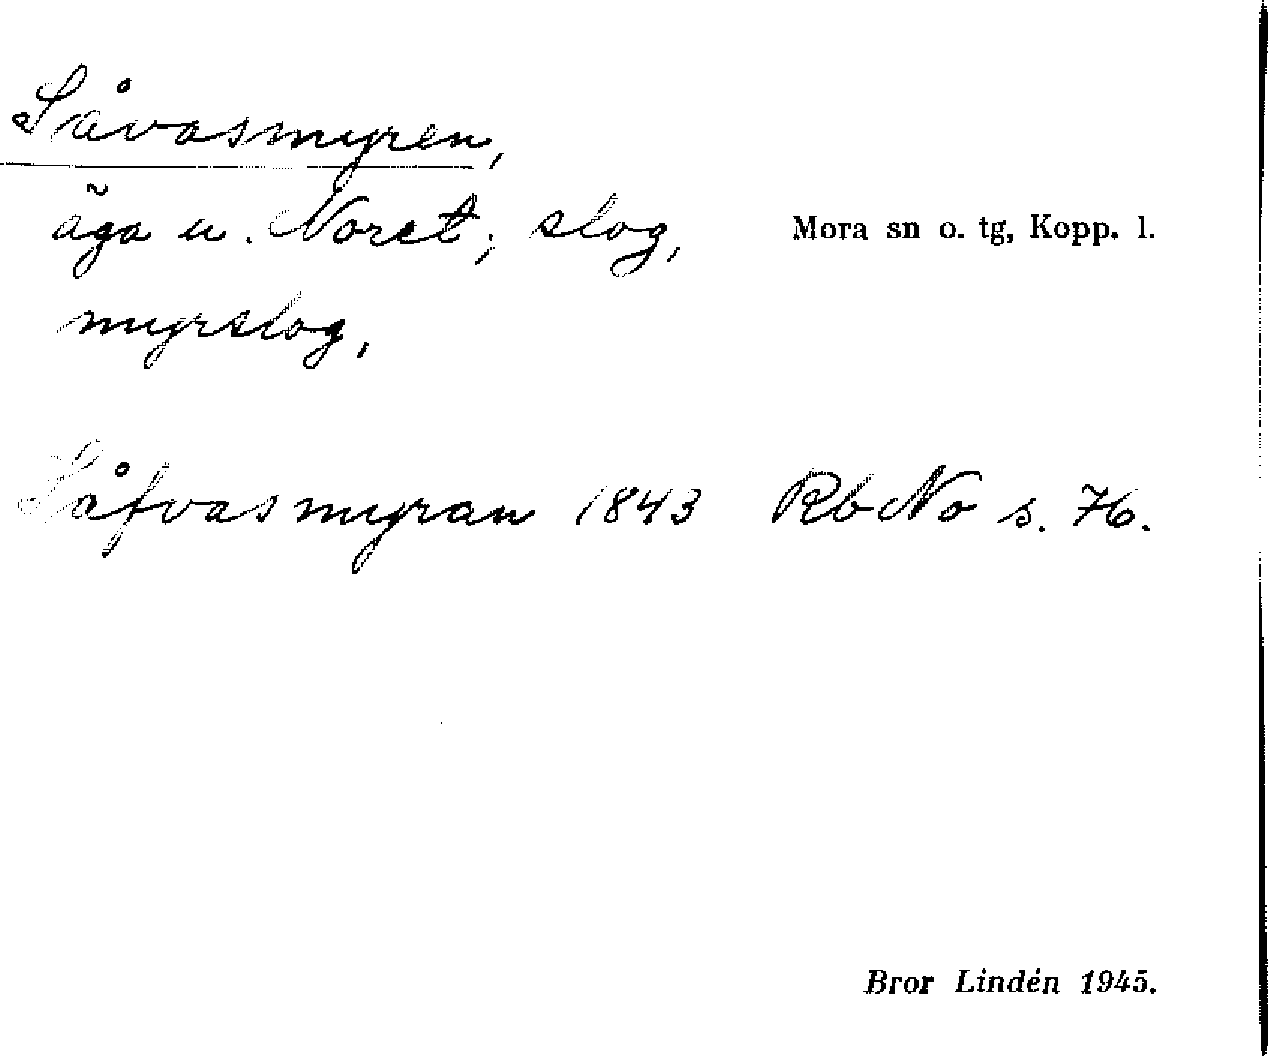 Såvasmyren,
äga u. Noret; slog,
Mora sn o. tg, Kopp. l.
myrslog,
Såfvasmyran 1843 RbNo s. 76.
Bror Lindén 1945.